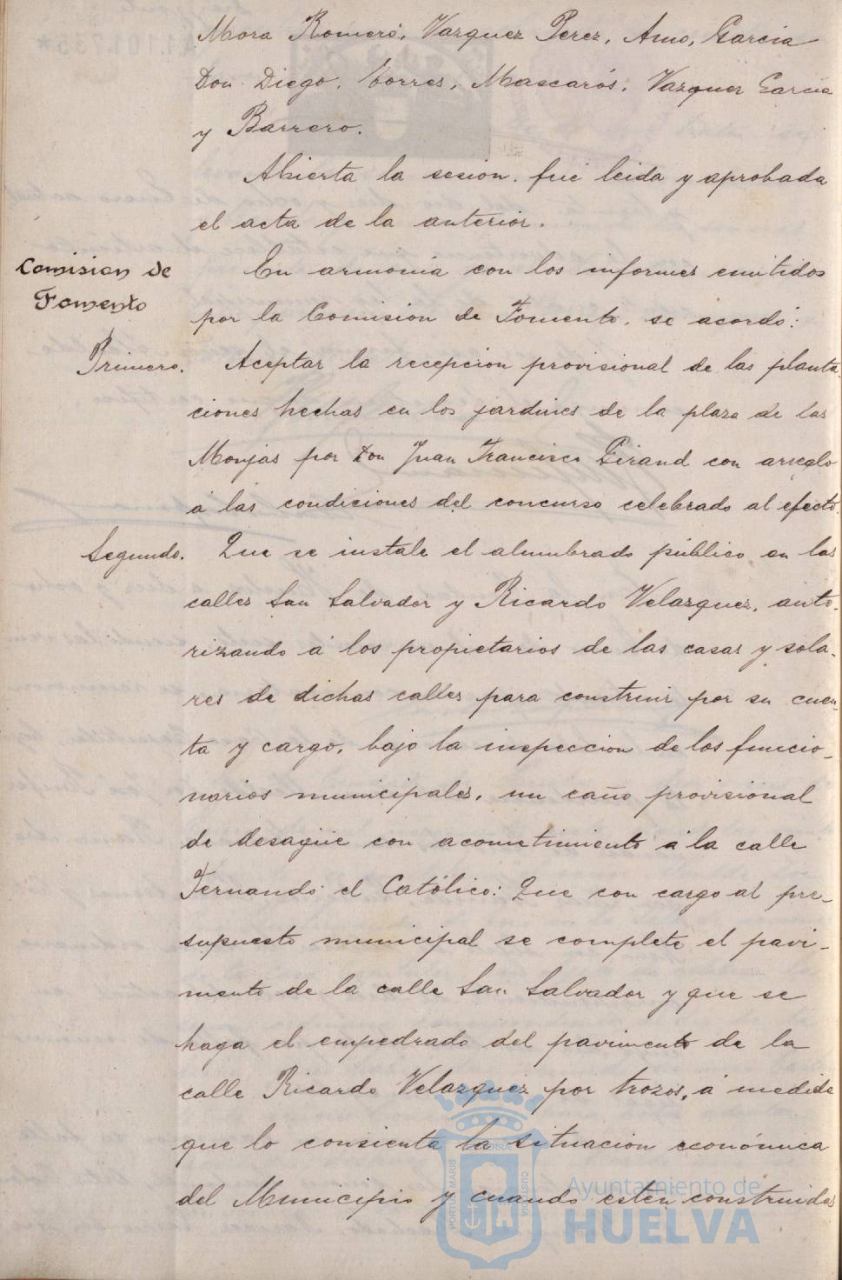 Mora Romero, Vazquez Perez, Amo, Garcia
Don Diego, Torres, Mascarós, Vazquez Garcia
y Barrero.
Abierta la sesion, fué leida y aprobada
el acta de la anterior.
Comision de
Fomento
En armonia con los informes emitidos
por la Comision de Fomento, se acordó:
Primero. Aceptar la recepcion provisional de las planta-
ciones hechas en los jardines de la plaza de las
Monjas por Don Juan Francisco Girand con arreglo
á las condiciones del concurso celebrado al efecto.
Segundo. Que se instale el alumbrado público en las
calles San Salvador y Ricardo Velazquez, auto-
rizando á los propietarios de las casas y sola-
res de dichas calles para construir por su cuen-
ta y cargo, bajo la inspeccion de los funcio-
narios municipales, un caño provisional
de desagüe con acometimiento á la calle
Fernando el Católico: Que con cargo al pre-
supuesto municipal se complete el pavi-
mento de la calle San Salvador y que se
haga el empedrado del pavimento de la
calle Ricardo Velazquez por trozos, á medida
que lo consienta la situacion económica
del Municipio y cuando esten construidos
PORTUS MARIS
CUSTODIA
Ayuntamiento de
HUELVA